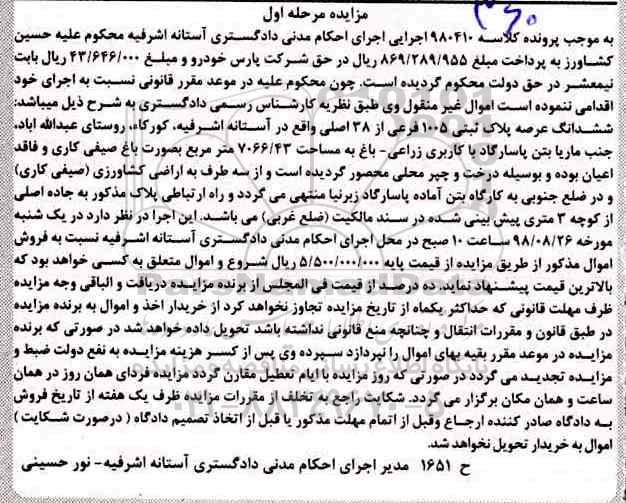 مزایده مرحله اول
به موجب پرونده کلاسه ۹۸۰۴۱۰ اجرایی اجرای احکام مدنی دادگستری آستانه اشرفیه محکوم علیه حسین
کشاورز به پرداخت مبلغ ۸۶۹/۲۸۹/۹۵۵ ریال در حق شرکت پارس خودرو و مبلغ ۴۳/۶۴۶/۰۰۰ ریال بابت
نیمعشر در حق دولت محکوم گردیده است. چون محکوم علیه در موعد مقرر قانونی نسبت به اجرای خود
اقدامی ننموده است اموال غیر منقول وی طبق نظریه کارشناس رسمی دادگستری به شرح ذیل میباشد:
ششدانگ عرصه پلاک ثبتی ۱۰۰۵ فرعی از ۳۸ اصلی واقع در آستانه اشرفیه، کورکاء، روستای عبدالله اباد،
جنب ماریا بتن پاسارگاد با کاربری زراعی- باغ به مساحت ۷۰۶۶/۴۳ متر مربع بصورت باغ صیفی کاری و فاقد
اعیان بوده و بوسیله درخت و چپر محلی محصور گردیده است و از سه طرف به اراضی کشاورزی (صیفی کاری)
و در ضلع جنوبی به کارگاه بتن آماده پاسارگاد زبرنیا منتهی می گردد و راه ارتباطی پلاک مذکور به جاده اصلی
از کوچه ۳ متری پیش بینی شده در سند مالکیت (ضلع غربی) می باشد. این اجرا در نظر دارد در یک شنبه
مورخه ۹۸/۰۸/۲۶ ساعت ۱۰ صبح در محل اجرای احکام مدنی دادگستری آستانه اشرفیه نسبت به فروش
اموال مذکور از طریق مزایده از قیمت پایه ۵/۵۰۰/۰۰۰/۰۰۰ ریال شروع و اموال متعلق به کسی خواهد بود که
بالاترین قیمت پیشنهاد نماید. ده درصد از قیمت فی المجلس از برنده مزایده دریافت و الباقی وجه مزایده
ظرف مهلت قانونی که حداکثر یکماه از تاریخ مزایده تجاوز نخواهد کرد از خریدار اخذ و اموال به برنده مزایده
در طبق قانون و مقررات انتقال و چنانچه منع قانونی نداشته باشد تحویل داده خواهد شد در صورتی که برنده
مزایده در موعد مقرر بقیه بهای اموال را نپردازد سپرده وی پس از کسر هزینه مزایده به نفع دولت ضبط و
مزایده تجدید می گردد در صورتی که روز مزایده با ایام تعطیل مقارن گردد مزایده فردای همان روز در همان
ساعت و همان مکان برگزار می گردد. شکایت راجع به تخلف از مقررات مزایده ظرف یک هفته از تاریخ فروش
به دادگاه صادر کننده ارجاع وقبل از اتمام مهلت مذکور یا قبل از اتخاذ تصمیم دادگاه ( درصورت شکایت )
اموال به خریدار تحویل نخواهد شد.
ح ۱۶۵۱ مدیر اجرای احکام مدنی دادگستری آستانه اشرفیه- نور حسینی